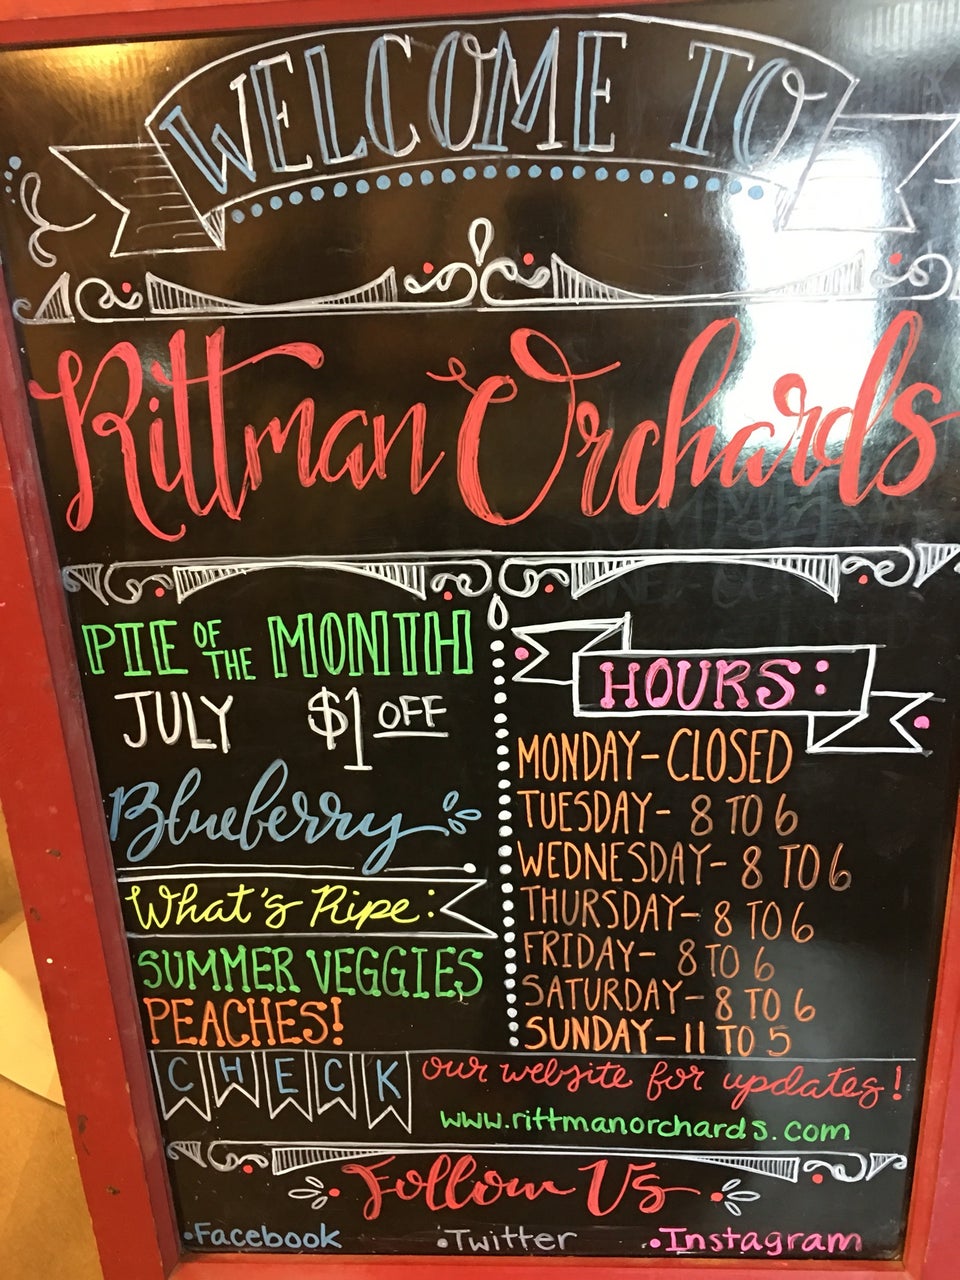 WELCOME TO
Rittman Orchards
PIE OF THE MONTH
JULY $1 OFF
Blueberry
What's Ripe:
SUMMER VEGGIES
PEACHES!
HOURS:
MONDAY-CLOSED
TUESDAY- 8 TO 6
WEDNESDAY- 8 TO 6
THURSDAY- 8 TO 6
FRIDAY- 8 TO 6
SATURDAY- 8 TO 6
SUNDAY-11 TO 5
CHECK our website for updates!
www.rittmanorchards.com
Follow Us
•Facebook •Twitter •Instagram